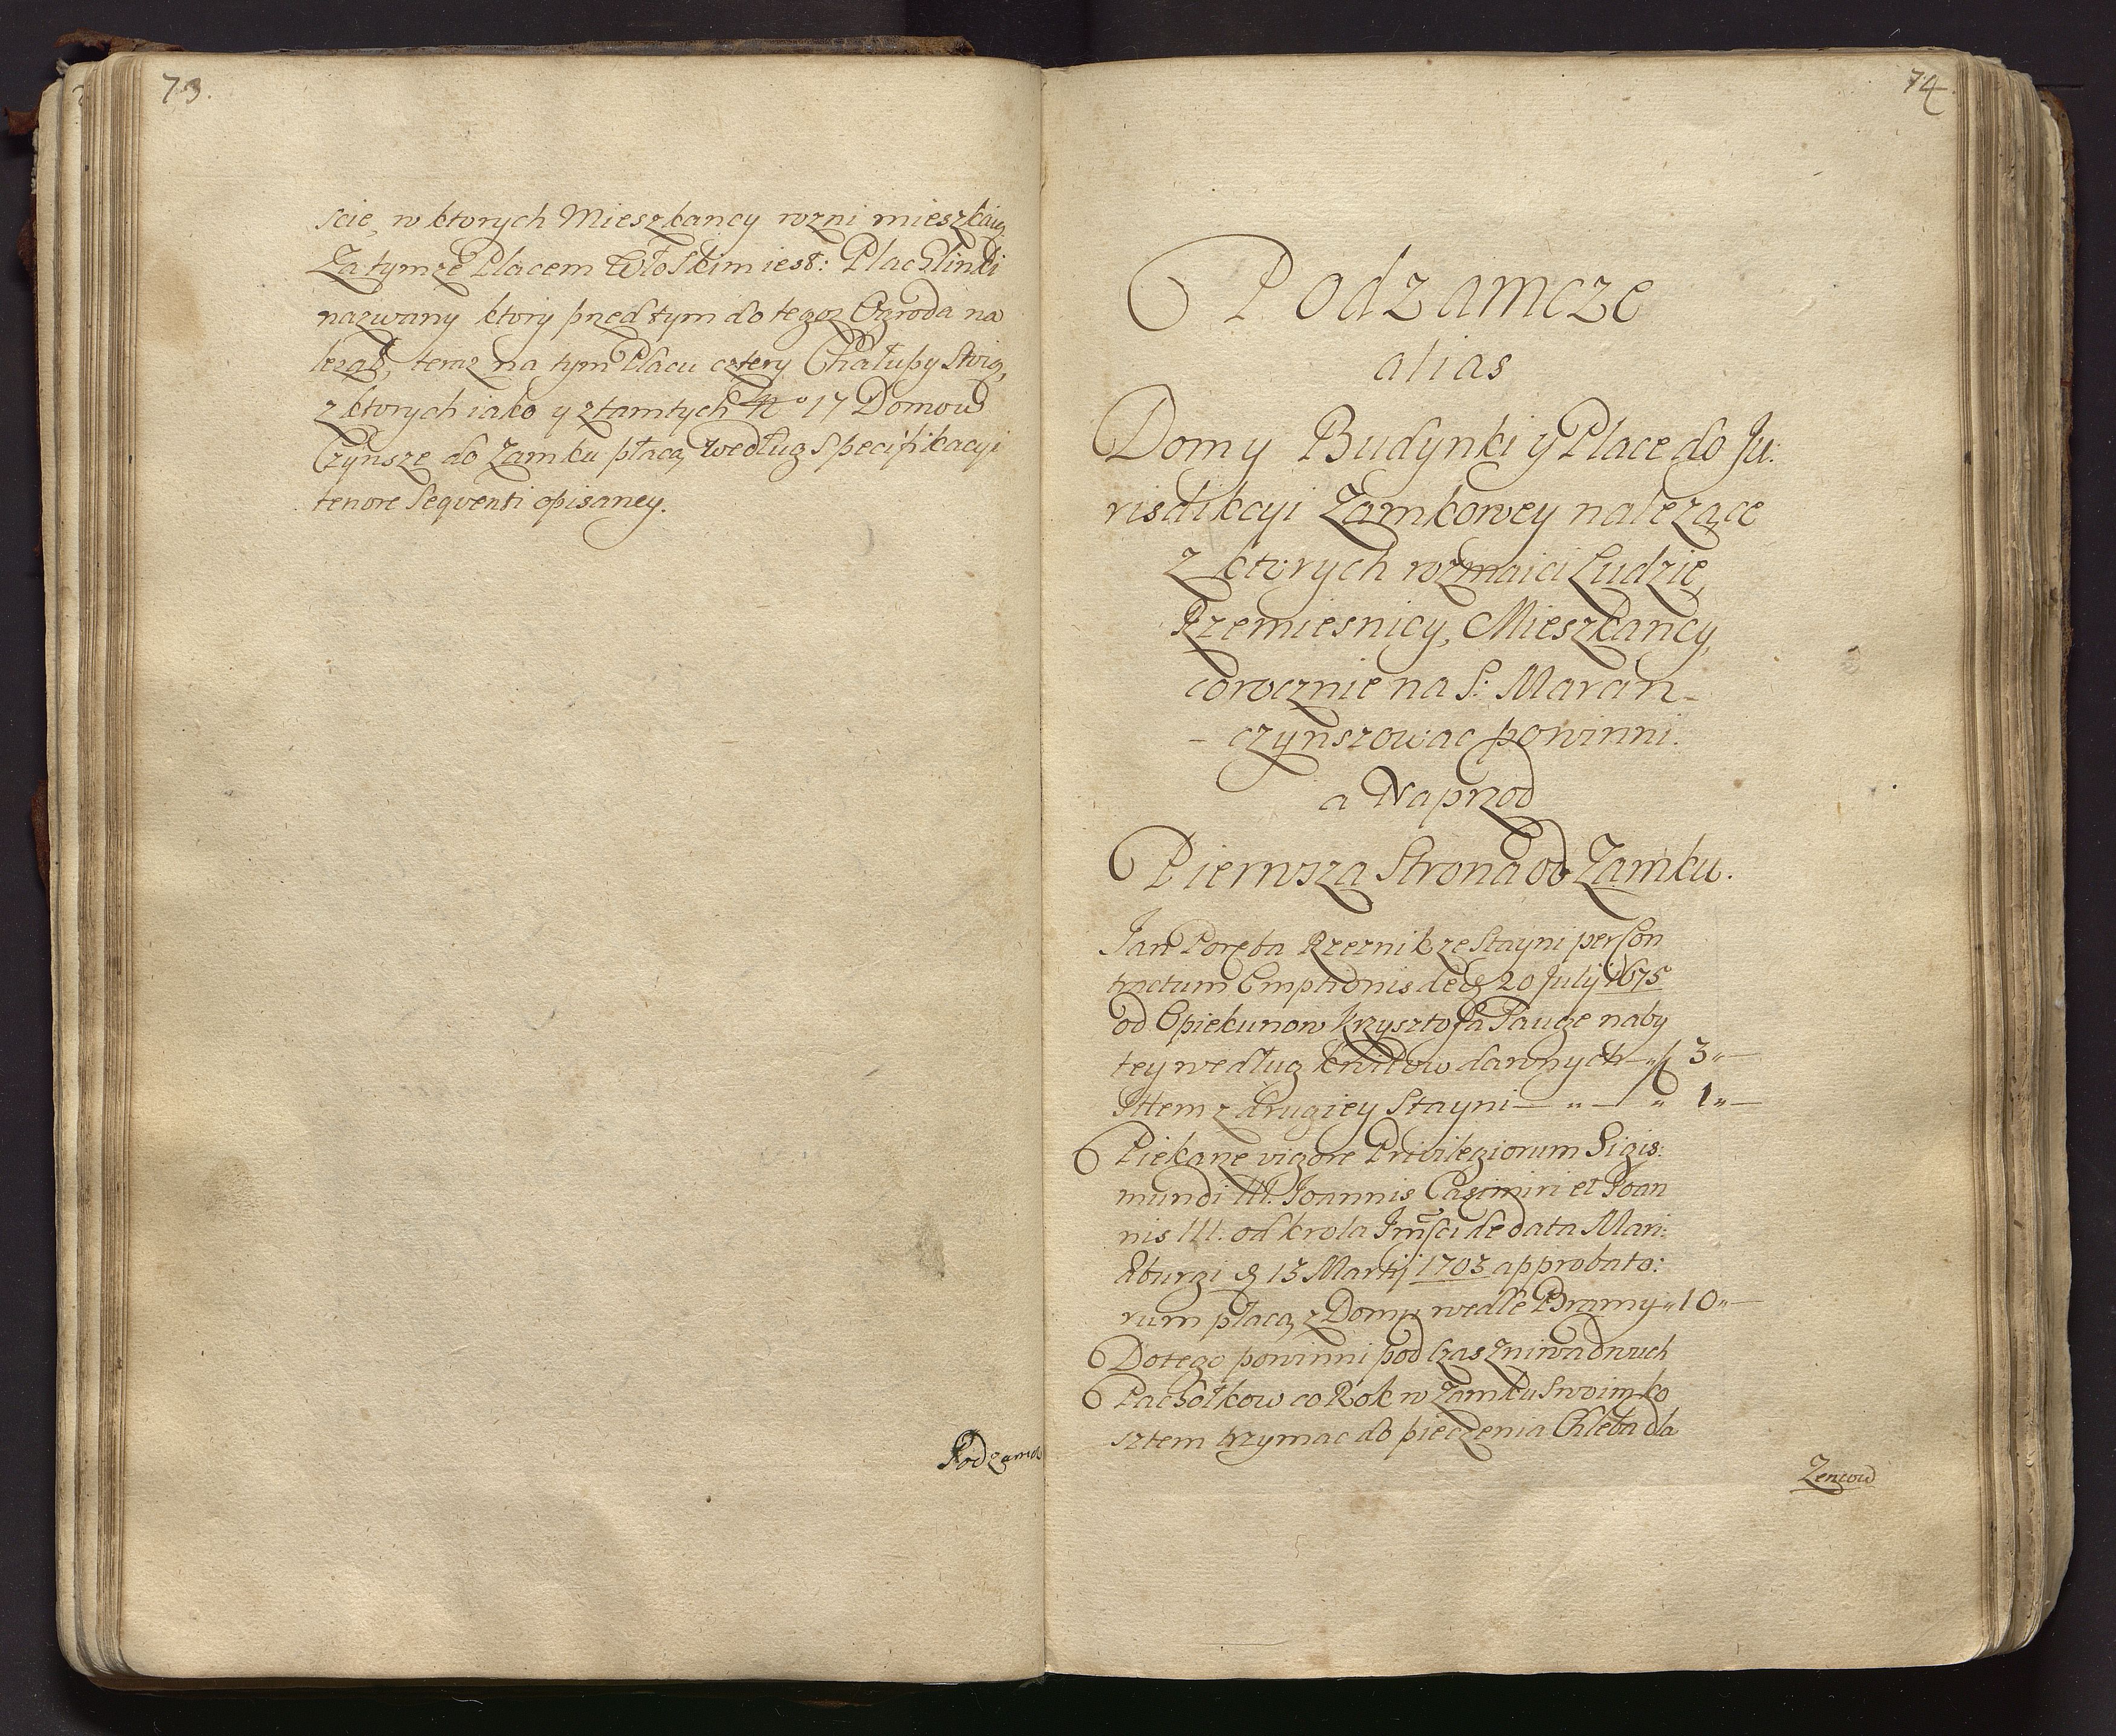 73.
scie, w ktorych Mieszkancy rozni mieszkaią.
Za tymze Placem Włoskim iest: Plac Glinki
nazwany ktory przed tym do tegoz Ogroda na
lezał, teraz na tym Placu cztery Chałupy stoią,
z ktorych iako y z tamtych No 17 Domow
Czynsze do Zamku płacą według Specifikacyi
tenore sequenti opisaney.
Podzamcz
74.
Podzamcze
alias
Domy Budynki y Place do Ju:
risdikcyi Zamkowey nalezące
z ktorych rozmaici Ludzie,
Rzemiesnicy, Mieszkancy,
corocznie na S: Marcin
czynszowac powinni.
a Naprzod
Pierwsza Strona od Zamku.
Jan Poręba Rzeznik ze Stayni per Con
tractum Emptionis de 20 July 1675
od Opiekunow Krzysztofa Pauze naby
tey według kwitow dawnych 3
Ittem z drugiey Stayni 1
Piekarze vigore Privilegiorum Sigis:
mundi III. Joannis Casimiri et Joan
nis III. od krola Jmsci de data Mari:
æburgi 13 Martij 1703 approbato:
rum płacą z Domu wedle Bramy 10
Do tego powinni pod czas Zniwa dwuch
Pachołkow co Rok w Zamku swoim ko
sztem trzymac do pieczenia Chleba dla
Zencow